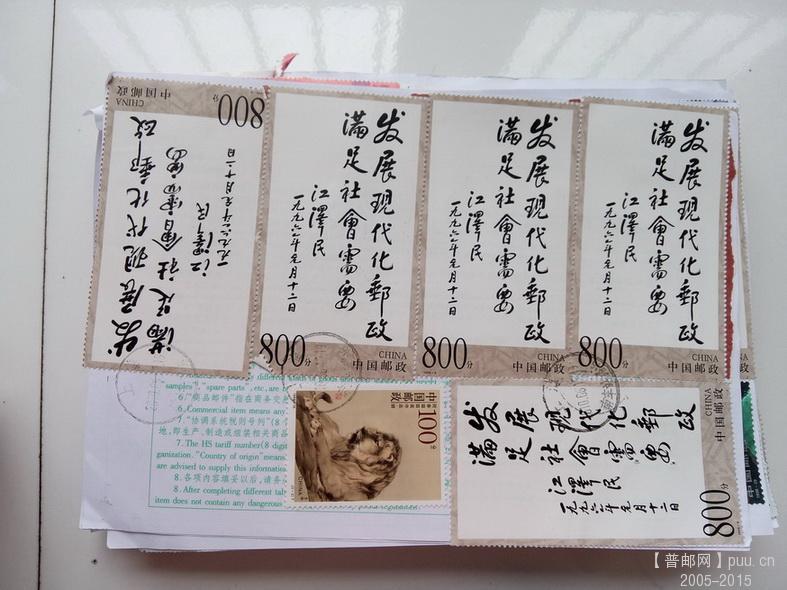 发展现代化郵政
满足社會需要
江澤民
一九九六年元月十二日
800分
CHINA
中国邮政
发展现代化郵政
满足社會需要
江澤民
一九九六年元月十二日
800分
CHINA
中国邮政
发展现代化郵政
满足社會需要
江澤民
一九九六年元月十二日
800分
CHINA
中国邮政
发展现代化郵政
满足社會需要
江澤民
一九九六年元月十二日
800分
CHINA
中国邮政
"samples", "spare parts", etc, are
6."商品邮件"指在商务交
6. Commercial item means any
7."协调系统税则号列"(8个
地,即生产、制造或组装相关商品
7. The HS tariff number(8 digit
ganization. "Country of origin"means
are advised to supply this information
8.各项内容填妥以后,请务
8. After completing different
item does not contain any dangerous
中国邮政
100分
CHINA
发展现代化郵政
满足社會需要
江澤民
一九九六年元月十二日
800分
CHINA
中国邮政
【普邮网】puu.cn
2005-2015